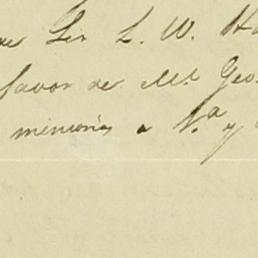 de Sir L. W. H
favor de Mr. Geo.
memorias a V.a y